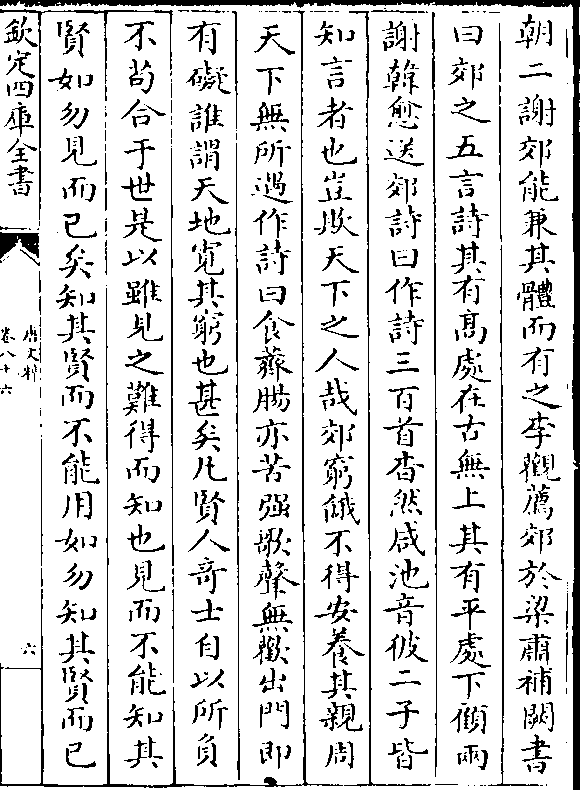 朝二謝郊能兼其體而有之李觀薦郊於梁肅補闕書
曰郊之五言詩其有髙處在古無上其有平處下顧兩
謝韓愈送郊詩曰作詩三百首杳然咸池音彼二子皆
知言者也豈欺天下之人哉郊窮餓不得安養其親周
天下無所遇作詩曰食薺腸亦苦强歌聲無歡出門即
有礙誰謂天地寛其窮也甚矣凡賢人竒士自以所負
不苟合于世是以雖見之難得而知也見而不能知其
賢如勿見而已矣知其賢而不能用如勿知其賢而已
欽定四庫全書
唐文粹
卷八十六
六